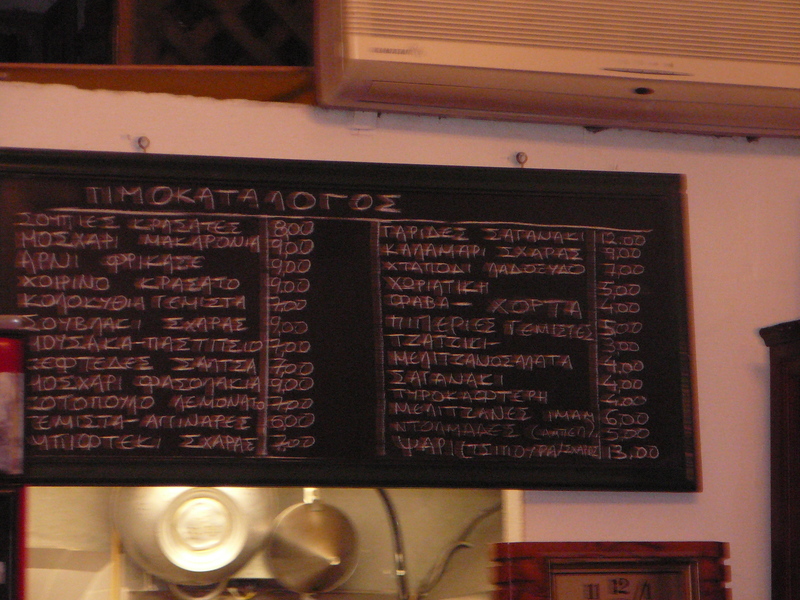 ΤΙΜΟΚΑΤΑΛΟΓΟΣ
ΣΟΥΠΙΕΣ ΚΡΑΣΑΤΕΣ 8,00
ΜΟΣΧΑΡΙ ΜΑΚΑΡΟΝΙΑ 9,00
ΑΡΝΙ ΦΡΙΚΑΣΕ 9,00
ΧΟΙΡΙΝΟ ΚΡΑΣΑΤΟ 9,00
ΚΟΛΟΚΥΘΙΑ ΓΕΜΙΣΤΑ 7,00
ΣΟΥΒΛΑΚΙ ΣΧΑΡΑΣ 9,00
ΜΟΥΣΑΚΑ-ΠΑΣΤΙΤΣΙΟ 7,00
ΚΕΦΤΕΔΕΣ ΣΑΛΤΣΑ 7,00
ΜΟΣΧΑΡΙ ΦΑΣΟΛΑΚΙΑ 9,00
ΚΟΤΟΠΟΥΛΟ ΛΕΜΟΝΑΤΟ 7,00
ΓΕΜΙΣΤΑ-ΑΓΓΙΝΑΡΕΣ 6,00
ΜΠΙΦΤΕΚΙ ΣΧΑΡΑΣ 7,00
ΓΑΡΙΔΕΣ ΣΑΓΑΝΑΚΙ 12,00
ΚΑΛΑΜΑΡΙ ΣΧΑΡΑΣ 9,00
ΧΤΑΠΟΔΙ ΛΑΔΟΞΥΔΟ 7,00
ΧΩΡΙΑΤΙΚΗ 5,00
ΦΑΒΑ - ΧΟΡΤΑ 4,00
ΠΙΠΕΡΙΕΣ ΓΕΜΙΣΤΕΣ 5,00
ΤΖΑΤΖΙΚΙ 3,00
ΜΕΛΙΤΖΑΝΟΣΑΛΑΤΑ 4,00
ΣΑΓΑΝΑΚΙ 4,00
ΤΥΡΟΚΑΦΤΕΡΗ 4,00
ΜΕΛΙΤΖΑΝΕΣ (ΙΜΑΜ) 6,00
ΝΤΟΛΜΑΔΕΣ 5,00
ΨΑΡΙ (ΤΣΙΠΟΥΡΑ 13,00
12